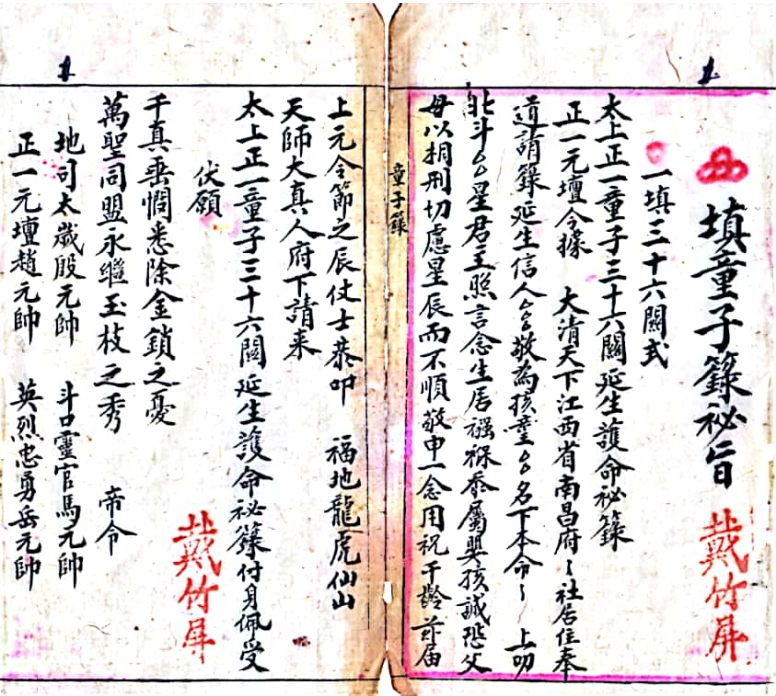 填童子籙秘旨
戴竹屏
一填三十六關式
太上正一童子三十六關延生護命秘籙
正一元壇今據 大清天下江西省南昌府〻社居住奉
道請籙延生信人厶厶敬為孩童厶厶名下本命〻 上叩
北斗厶厶星君主照言念生居襁褓忝屬嬰孩誠恐父
母以相刑切慮星辰而不順敬申一念用祝千齡茲届
童子籙
上元令節之辰仗士恭叩 福地龍虎仙山
天師大真人府下請来
太上正一童子三十六關延生護命秘籙付身佩受
伏願
戴竹屏
千真垂憫悉除金鎖之憂
萬聖同盟永繼玉枝之秀 帝令
地司太歲殷元帥 斗口靈官馬元帥
正一元壇趙元帥 英烈忠勇岳元帥